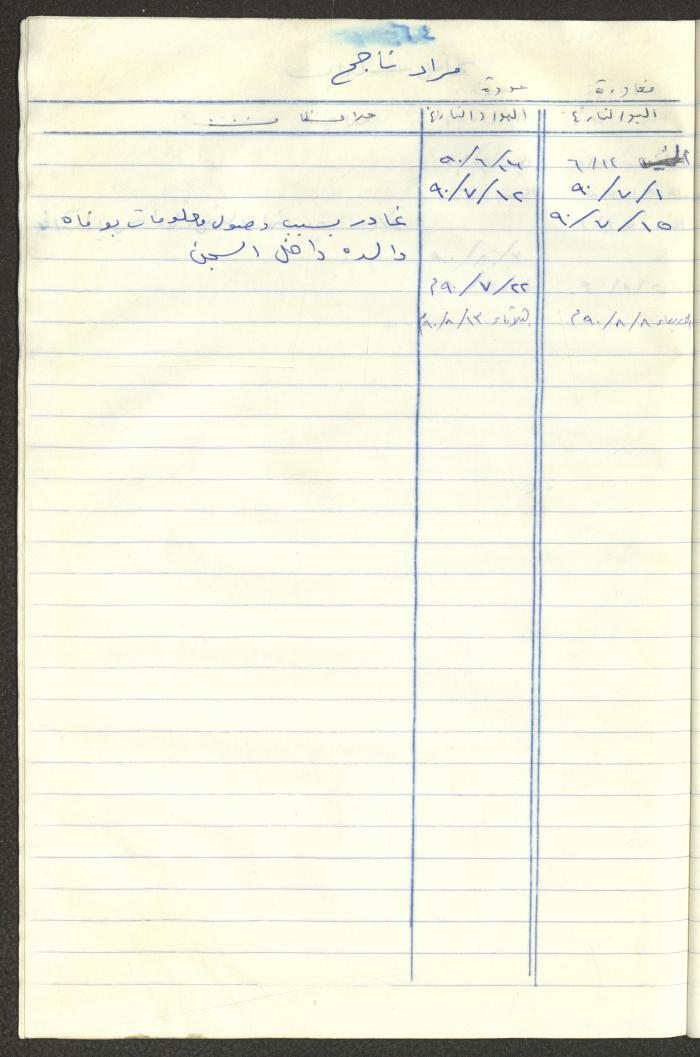 ٦٤
مراد ناجح
مغادرة عودة
اليوم التاريخ اليوم والتاريخ ملاحظات
٦/١٤ ٩٠/٦/١٦
٩٠/٧/١ ٩٠/٧/١٢
٩٠/٧/١٥ غادر بسبب وصول معلومات بوفاه
والده داخل السجن
٩٠/٧/٢٢م
الاربعاء ٩٠/٨/٨م الثلاثاء ٩٠/٨/١٣م